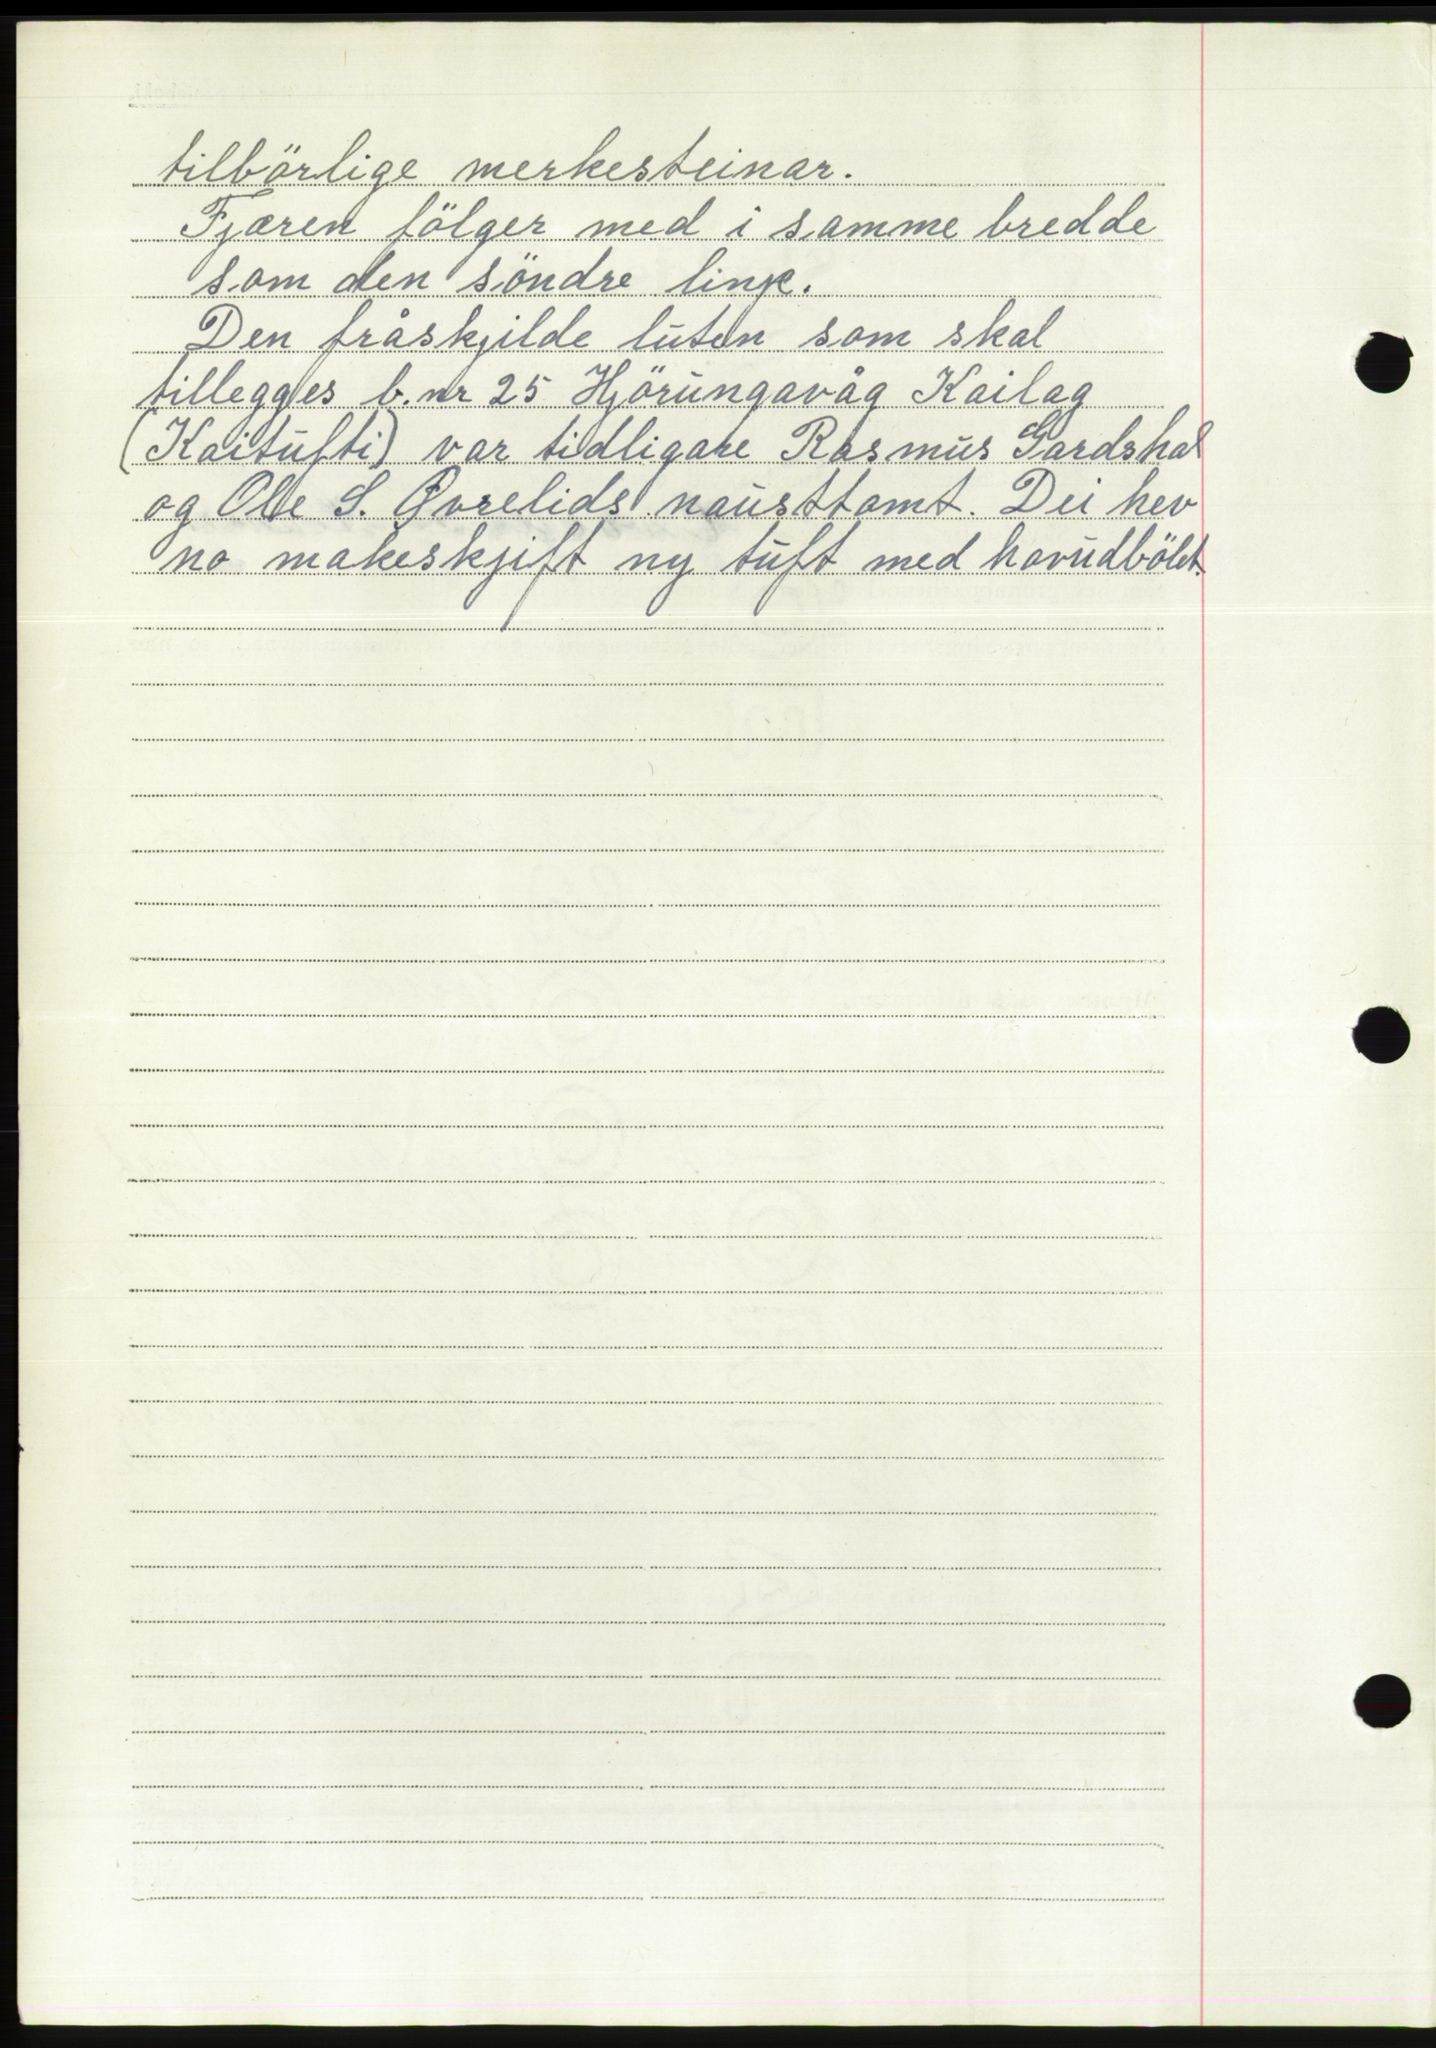 tilbörlige merkesteinar.
Fjæren fölger med i samme bredde
som den söndre linje.
Den fråskjilde luten som skal
tillegges b.nr 25 Hjörungavåg Kailag
(Kaitufti) var tidligare Rasmus Gardshol
og Ole S. Øvrelids nausttomt. Dei hev
no makeskjift ny tuft med hovudbölet.